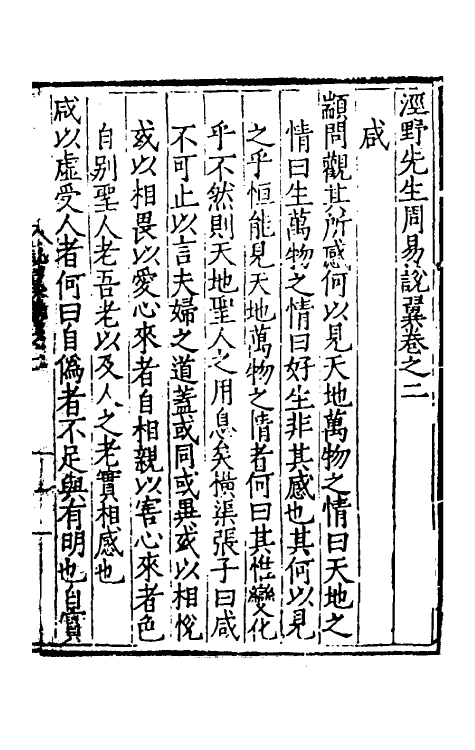 涇野先生周易說翼卷之二
咸
顓問觀其所感何以見天地萬物之情曰天地之
情曰生萬物之情曰好生非其感也其何以見
之乎恒能見天地萬物之情者何曰其惟變化
乎不然則天地聖人之用息矣橫渠張子曰咸
不可止以言夫婦之道蓋或同或異或以相悅
或以相畏以愛心來者自相親以害心來者色
自别聖人老吾老以及人之老實相感也
咸以虛受人者何曰自僞者不足與有明也自實